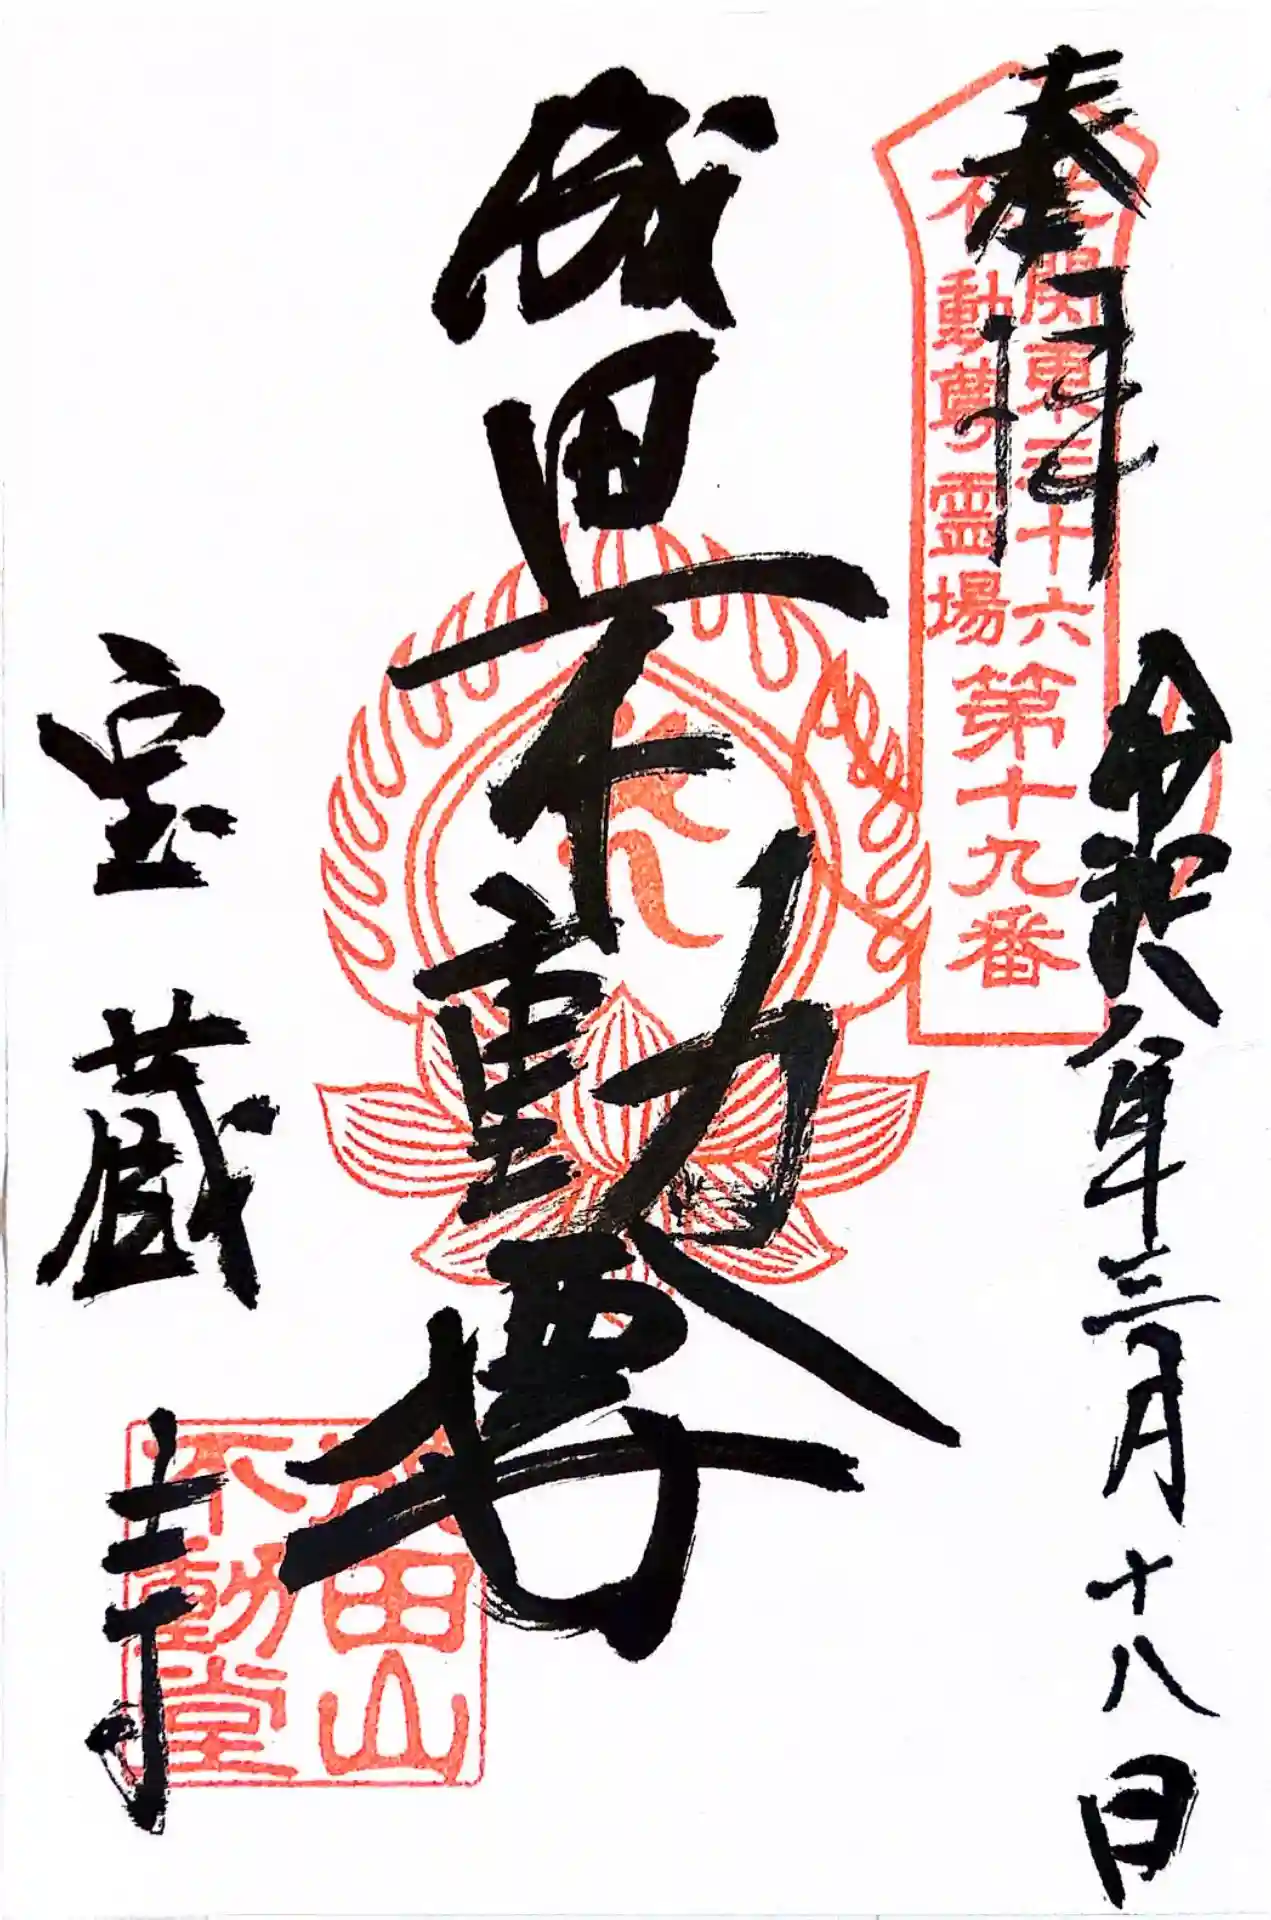 奉拝
北関東三十六
不動尊霊場
第十九番
令和八年三月十八日
成田山不動尊
宝蔵寺
成田山
不動堂